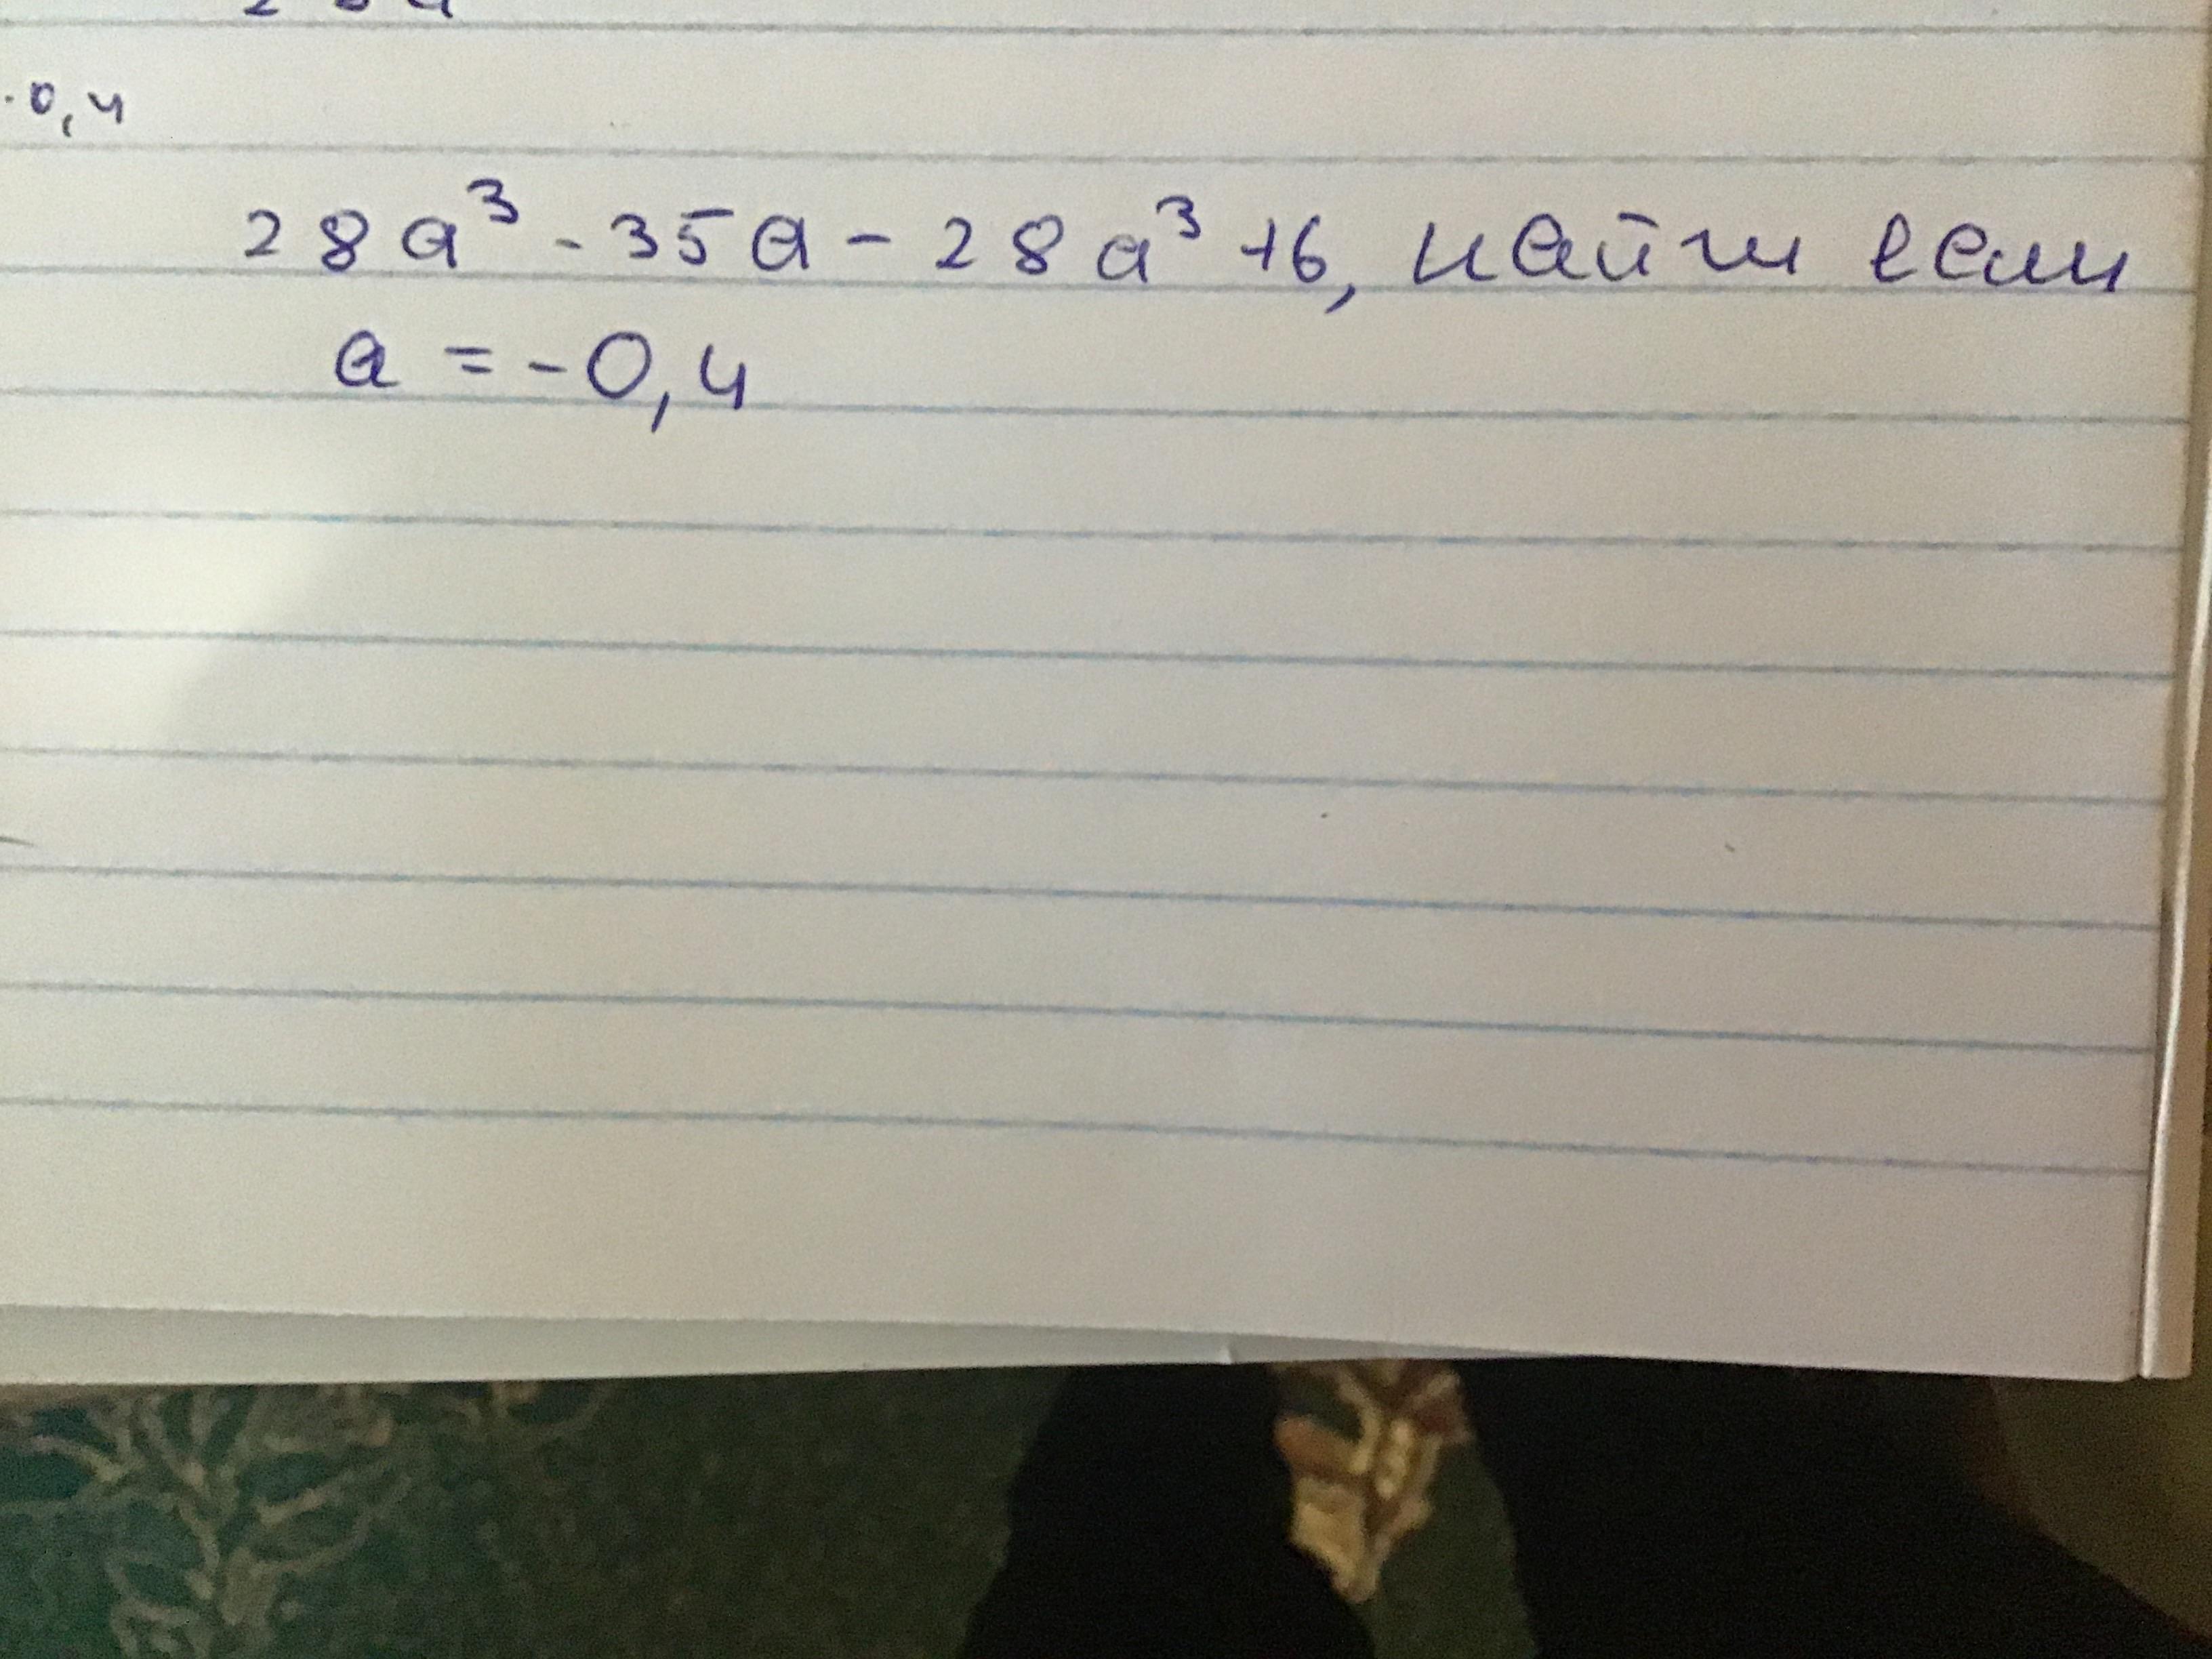 ·0,4
28a³ - 35a - 28a³ + 6, найти если
a = -0,4